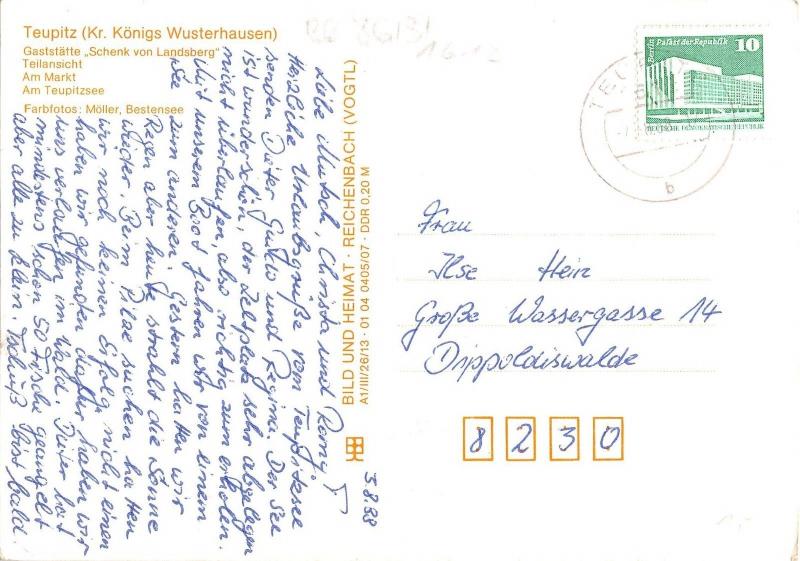 Teupitz (Kr. Königs Wusterhausen)
Gaststätte „Schenk von Landsberg"
Teilansicht
Am Markt
Am Teupitzsee
Farbfotos: Möller, Bestensee
Liebe Mutsch, Christa und Romy!
Herzliche Urlaubsgrüße vom Teupitzsee
senden Dieter, Guido und Regina. Der See
ist wunderschön, der Zeltplatz sehr abgelegen
nicht überlaufen, also richtig zum erholen.
Mit unserem Boot fahren wir von einem
See zum anderen. Gestern hatten wir
Regen aber heute strahlt die Sonne
wieder. Beim Pilze suchen hatten
wir noch keinen Erfolg, nicht einen
haben wir gefunden dafür haben wir
uns verlaufen im Wald. Dieter hat
mindestens schon 50 Fische geangelt
aber alle zu klein. Tschüß bist bald.
3.8.88
BILD UND HEIMAT · REICHENBACH (VOGTL)
A1/III/26/13 · 01 04 0405/07 · DDR 0,20 M
Berlin Palast der Republik
10
DEUTSCHE DEMOKRATISCHE REPUBLIK
b
Frau
Ilse Hein
Große Wassergasse 14
Dippoldiswalde
8 2 3 0